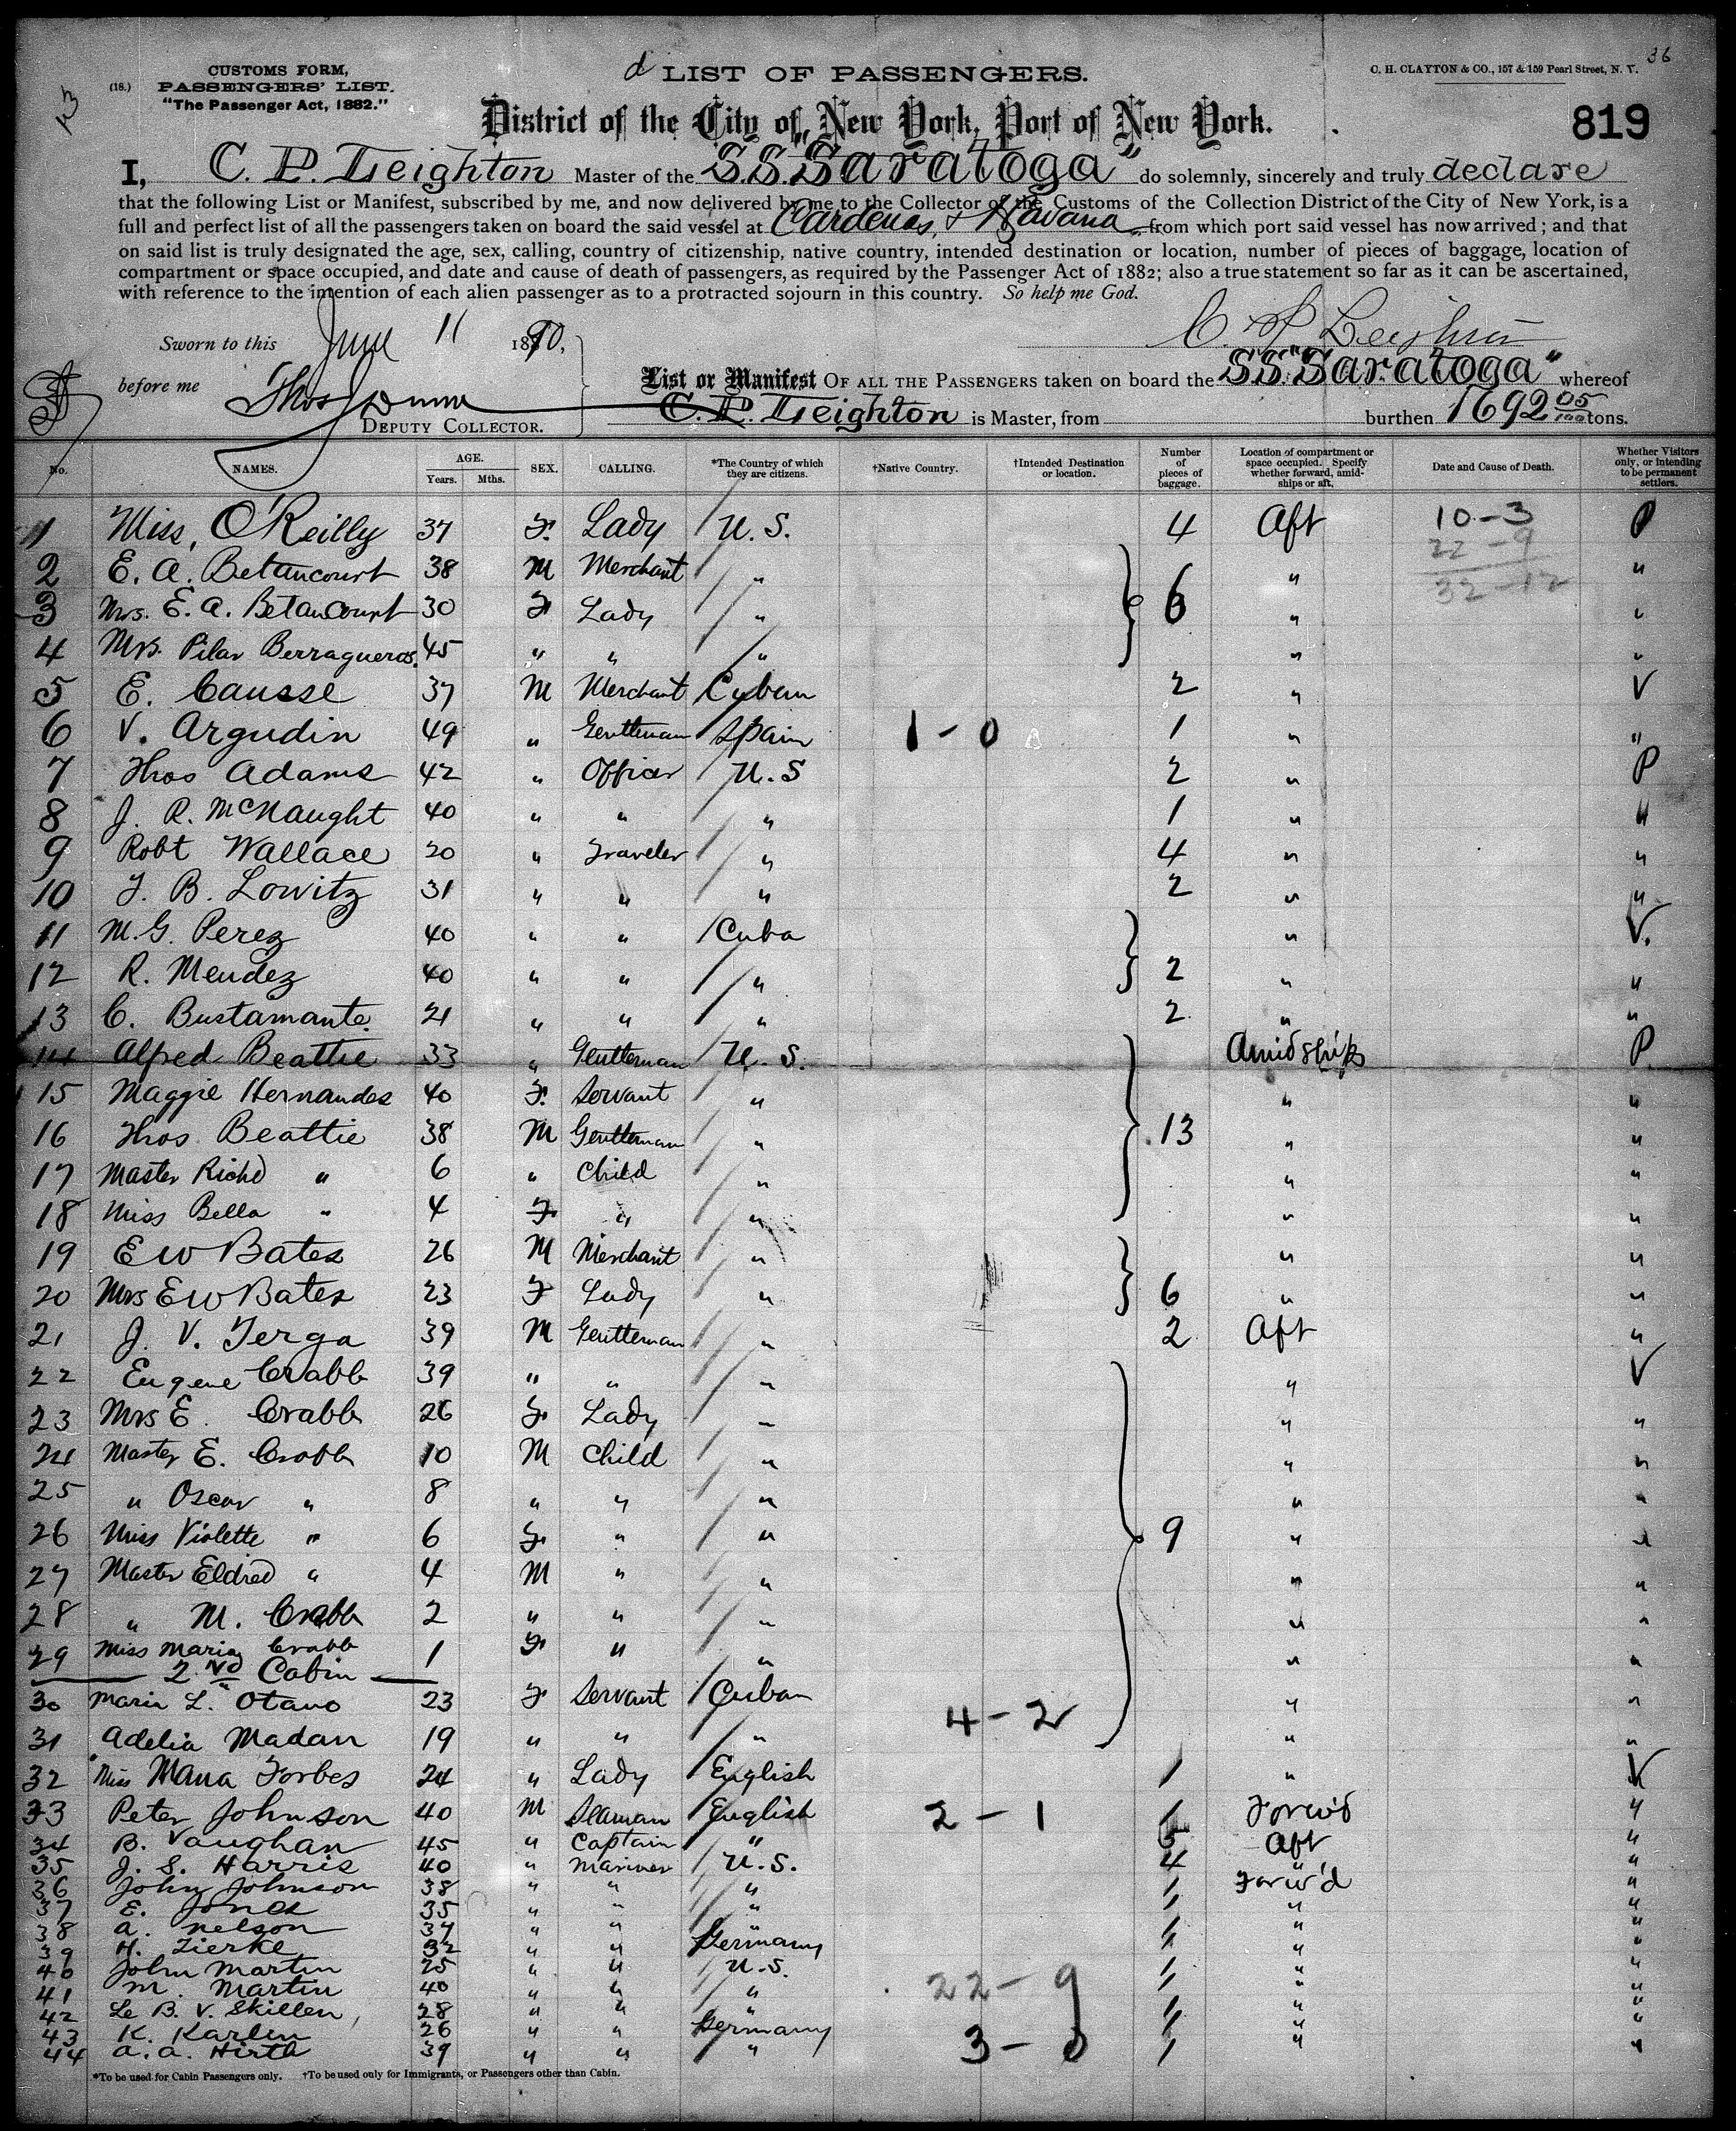 36
CUSTOMS FORM,
(18.) PASSENGERS' LIST.
"The Passenger Act, 1882."
LIST OF PASSENGERS.
C. H. CLAYTON & CO., 157 & 159 Pearl Street, N. Y.
District of the City of New York, Port of New York.
819
I, C. P. Leighton Master of the S.S. "Saratoga" do solemnly, sincerely and truly declare
that the following List or Manifest, subscribed by me, and now delivered by me to the Collector of the Customs of the Collection District of the City of New York, is a
full and perfect list of all the passengers taken on board the said vessel at Cardenas, & Havana from which port said vessel has now arrived; and that
on said list is truly designated the age, sex, calling, country of citizenship, native country, intended destination or location, number of pieces of baggage, location of
compartment or space occupied, and date and cause of death of passengers, as required by the Passenger Act of 1882; also a true statement so far as it can be ascertained,
with reference to the intention of each alien passenger as to a protracted sojourn in this country. So help me God.
Sworn to this June 11 1890, C. P. Leighton
before me Thos J Dunn
DEPUTY COLLECTOR.
List or Manifest OF ALL THE PASSENGERS taken on board the S.S. "Saratoga" whereof
C. P. Leighton is Master, from burthen 1692 05/100 tons.
No. NAMES. AGE. Years. Mths. SEX. CALLING. *The Country of which they are citizens. †Native Country. †Intended Destination or location. Number of pieces of baggage. Location of compartment or space occupied. Specify whether forward, amidships or aft. Date and Cause of Death. Whether Visitors only, or intending to be permanent settlers.
1 Miss, O'Reilly 37 F. Lady U.S. 4 Aft 10-3 P
2 E. A. Betancourt 38 M Merchant " " 22-9 "
32-12
3 Mrs. E. A. Betancourt 30 F Lady " 6 " "
4 Mrs. Pilar Berragueros. 45 " " " " "
5 E. Causse 37 M Merchant Cuban 2 " V
6 V. Argudin 49 " Gentleman Spain 1-0 1 " "
7 Thos Adams 42 " Officer U.S 2 " P
8 J. R. McNaught 40 " " " 1 " "
9 Robt Wallace 20 " Traveler " 4 " "
10 J. B. Lowitz 31 " " " 2 " "
11 M. G. Perez 40 " " Cuba " V.
12 R. Mendez 40 " " " 2 " "
13 C. Bustamante. 21 " " " 2 " "
14 Alfred Beattie 33 " Gentleman U.S. Amidships P
15 Maggie Hernandes 40 F. Servant " " "
16 Thos Beattie 38 M Gentleman " 13 " "
17 Master Richd " 6 " Child " " "
18 Miss Bella " 4 F. " " " "
19 E W Bates 26 M Merchant " " "
20 Mrs E W Bates 23 F Lady " 6 " "
21 J. V. Terga 39 M Gentleman " 2 Aft "
22 Eugene Crabb 39 " " " " V
23 Mrs E. Crabb 26 F. Lady " " "
24 Master E. Crabb 10 M Child " " "
25 " Oscar " 8 " " " " "
26 Miss Violette " 6 F. " " 9 " "
27 Master Eldred " 4 M " " " "
28 " M. Crabb 2 " " " " "
29 Miss Maria Crabb 1 F. " " " "
2nd Cabin
30 Maria L. Otano 23 F Servant Cuban 4-2 " "
31 Adelia Madan 19 " " " " "
32 Miss Maria Forbes 24 " Lady English 1 " V
33 Peter Johnson 40 M Seaman English 2-1 1 Forw'd "
34 B. Vaughan 45 " Captain " 5 Aft "
35 J. S. Harris 40 " Mariner U.S. 4 " "
36 John Johnson 38 " " " 1 Forw'd "
37 E. Jones 35 " " " 1 " "
38 A. Nelson 37 " " " 1 " "
39 H. Zierke 32 " " Germany 1 " "
40 John Martin 25 " " U.S. 1 " "
41 M. Martin 40 " " " 22-9 1 " "
42 Le B. V. Skillen, 28 " " " 1 " "
43 K. Karlin 26 " " Germany 1 " "
44 A. A. Hirth 39 " " " 3-0 1 " "
*To be used for Cabin Passengers only. †To be used only for Immigrants, or Passengers other than Cabin.